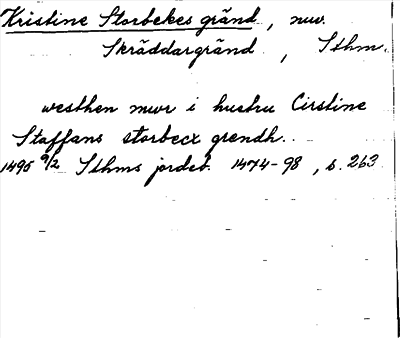 Kristine Storbekes gränd, nuv.
Skräddargränd, Sthm.
westhen mwr i hustru Cirstine
Staffans storbecx grendh.
1495 9/2 Sthms jordeb. 1474-98, s. 263